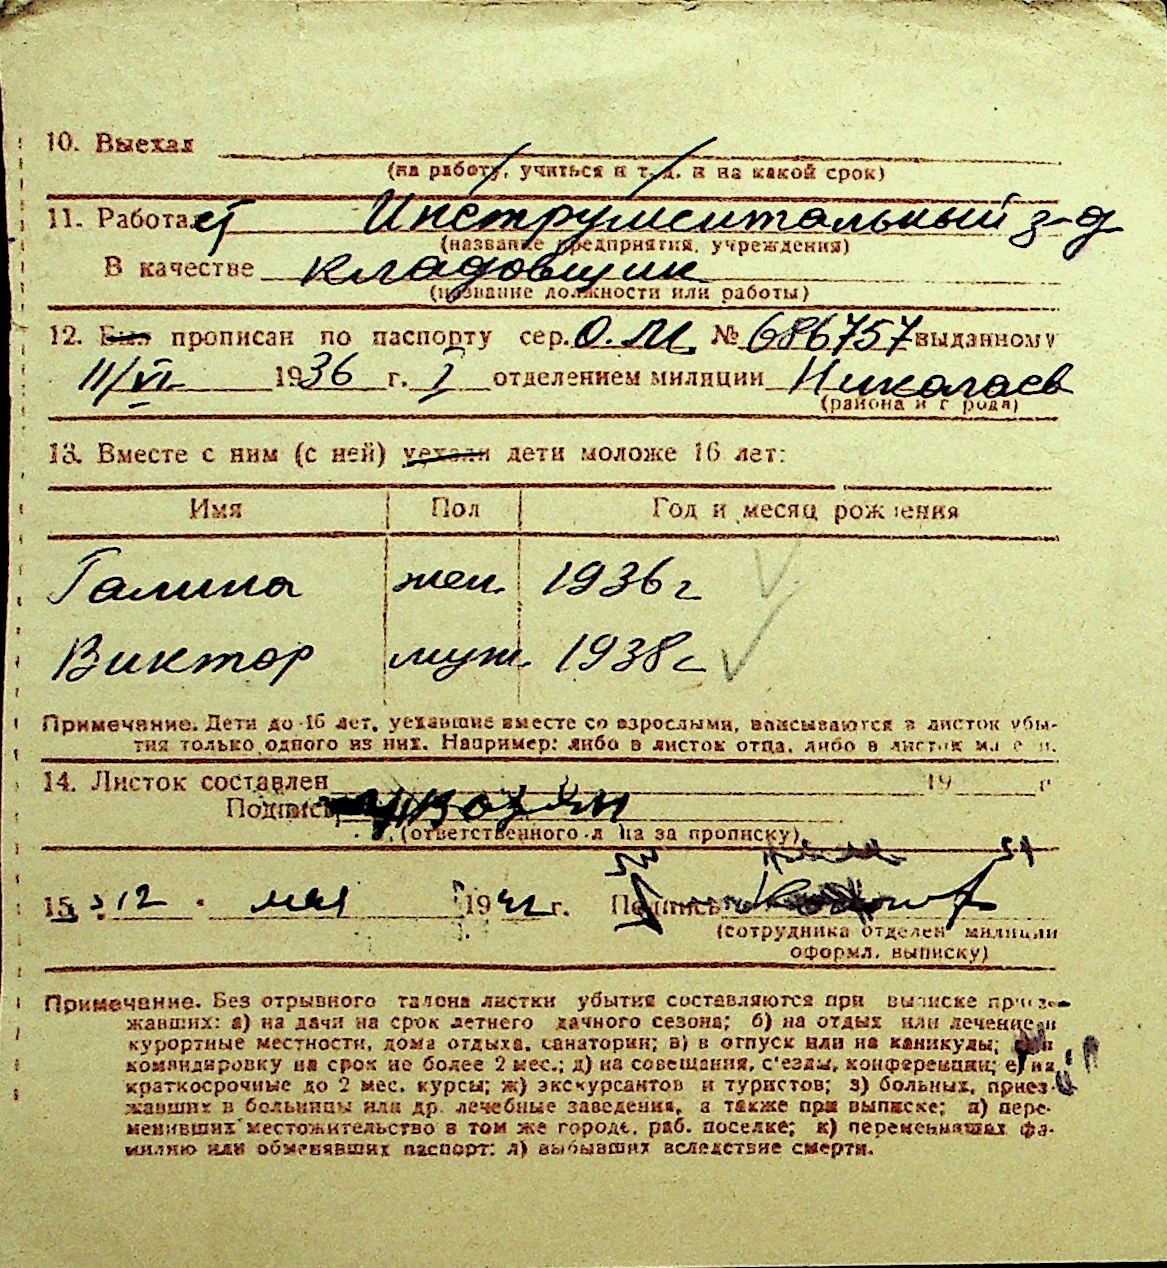 10. Выехал
(на работу, учиться и т. д. и на какой срок)
11. Работает Инструментальный з-д
(название предприятия, учреждения)
В качестве кладовщик
(название должности или работы)
12. Был прописан по паспорту сер. О.М. № 686757 выданному
11/VI 1936 г. I отделением милиции Николаев
(района и города)
13. Вместе с ним (с ней) уехали дети моложе 16 лет:
Имя Пол Год и месяц рождения
Галина жен. 1936 г
Виктор муж. 1938 г
Примечание. Дети до 16 лет, уехавшие вместе со взрослыми, вписываются в листок убы-
тия только одного из них. Например: либо в листок отца, либо в листок матери.
14. Листок составлен 19 г
Подпись
(ответственного лица за прописку)
15. 12 . мая 1942 г. Подпись
(сотрудника отделен. милиции
оформл. выписку)
Примечание. Без отрывного талона листки убытия составляются при выписке приез-
жавших: а) на дачи на срок летнего дачного сезона; б) на отдых или лечение в
курортные местности, дома отдыха, санатории; в) в отпуск или на каникулы; в
командировку на срок не более 2 мес.; д) на совещания, с'езды, конференции; е) на
краткосрочные до 2 мес. курсы; ж) экскурсантов и туристов; з) больных, приез-
жавших в больницы или др. лечебные заведения, а также при выписке; и) пере-
менивших местожительство в том же городе, раб. поселке; к) переменивших фа-
милию или обменявших паспорт; л) выбывших вследствие смерти.